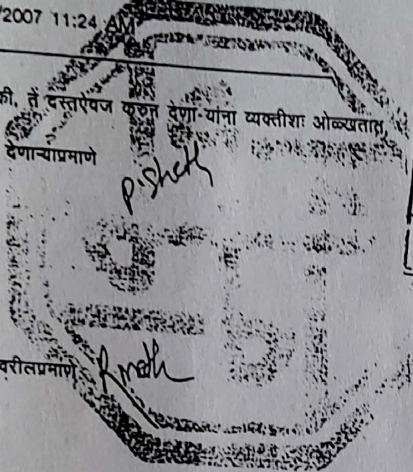 /2007 11:24 AM
की, ते दस्तऐवज करुन देणा-यांना व्यक्तीशः ओळखतात,
देणाऱ्याप्रमाणे
P. Sheth
वरीलप्रमाणे